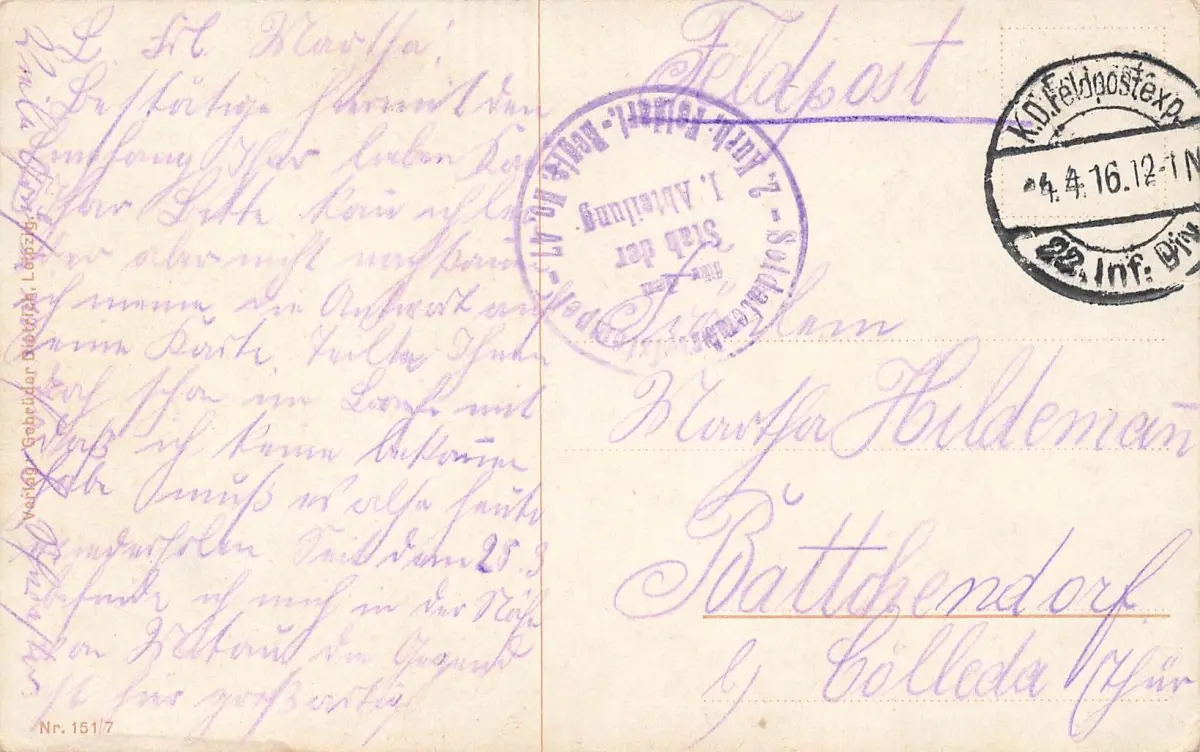 L. Frl. Martha!
Bestätige hiermit den
Empfang Ihrer lieben Karte
Ihrer Bitte kann ich lei
der aber nicht nachkommen
ich meine die Antwort auf
meine Karte. Teilte Ihnen
doch schon im Briefe mit
daß ich keine bekommen
habe muß es also heute
wiederholen. Seit dem 25.3
befinde ich mich in der Nähe
von Mitau die Gegend
ist hier großartig
Verlag: Gebrüder Dietrich, Leipzig.
Nr. 151/7
Feldpost
K.D. Feldpostexp.
4.4.16.12-1N
22. Inf. Div.
2. Kurh. Feldart.-Regts No. 47
Soldatenbrief
Stab der
I. Abteilung
Fräulein
Martha Hildemann
Battgendorf
b/ Cölleda /Thür